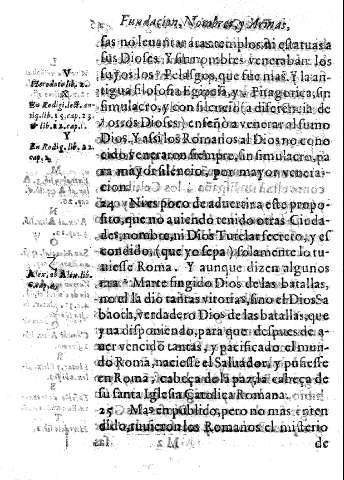 Fundacion, Nombres, y Armas,
sas no leuantar aras templos, ni estatuas a
sus Dioses. Y sin nombres venerabān los
suyos los Pelasgos, que fue nias. Y la an-
tigua filosofia Egipcia, y Pitagorica, sin
simulacro, y con silencio (a diferencia de
otros Dioses) enseñò a venerar al sumo
Dios. Y assi los Romanos al Dios no cono
cido veneraron siempre, sin simulacro, pa
ra mayor silencio, por mayor venera-
cion.
24 Ni es poco de aduertir a este propo
sito, que no auiendo tenido otras Ciuda-
des, nombre, ni Dios Tutelar secreto, y es
condido, (que yo sepa) solamente lo tu-
uiesse Roma. Y aunque dizen algunos
era Marte fingido Dios de las batallas,
no el la diò tātas vitorias, sino el Dios Sa
baoth, verdadero Dios de las batallas, que
yua disponiendo, para que despues de a-
uer vencido tantas, y pacificado el mun-
do Roma, naciesse el Saluador, y pusiesse
en Roma, cabeça de la paz, la cabeça de
su santa Iglesia Catolica Romana.
25 Mas en publico, pero no mas enten
dido, tuuieron los Romanos el misterio
M 2
de
V
Herodoto lib. 2.
X
En Rodig. lect. an-
tig. lib. 15. cap. 23.
& lib. 22. cap. 1.
Y
En Rodig. lib. 22.
cap. 2.
Z
Alex. ab Alex. lib.
6. cap. 4.